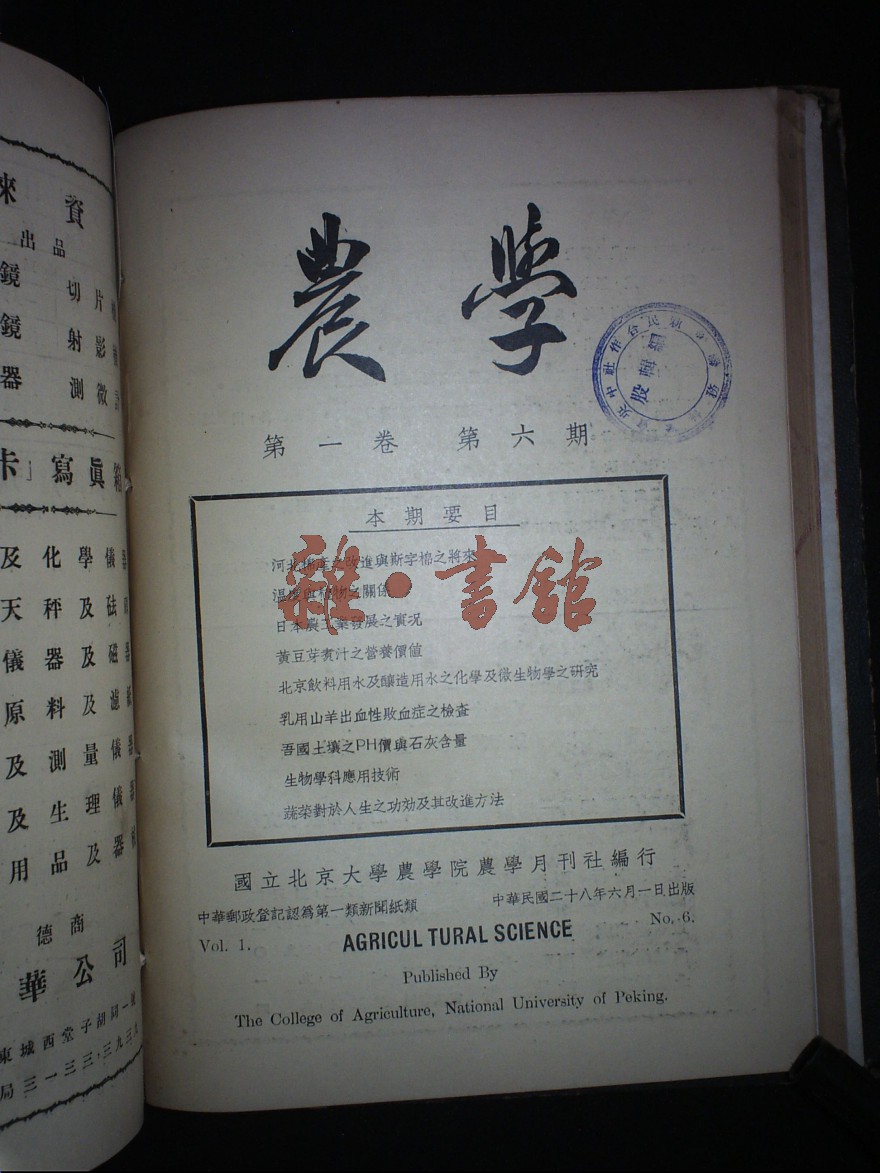 農學
第一卷 第六期
本期要目
河北棉產之改進與斯字棉之將來
溫度與植物之關係
日本農工業發展之實况
黃豆芽煮汁之營養價值
北京飲料用水及釀造用水之化學及微生物學之研究
乳用山羊出血性敗血症之檢查
吾國土壤之PH價與石灰含量
生物學科應用技術
蔬菜對於人生之功効及其改進方法
國立北京大學農學院農學月刊社編行
中華郵政登記認爲第一類新聞紙類
中華民國二十八年六月一日出版
Vol. 1.
AGRICUL TURAL SCIENCE
No. 6.
Published By
The College of Agriculture, National University of Peking.
雜·書館
編輯股
來資
出品
鏡 切片
鏡 射影
器 測微
卡」寫眞
及化學儀器
天秤及砝
儀器及磁器
原料及濾紙
及測量儀器
及生理儀器
用品及器
德商
華公司
東城西堂子胡同
局三一三三,三九三